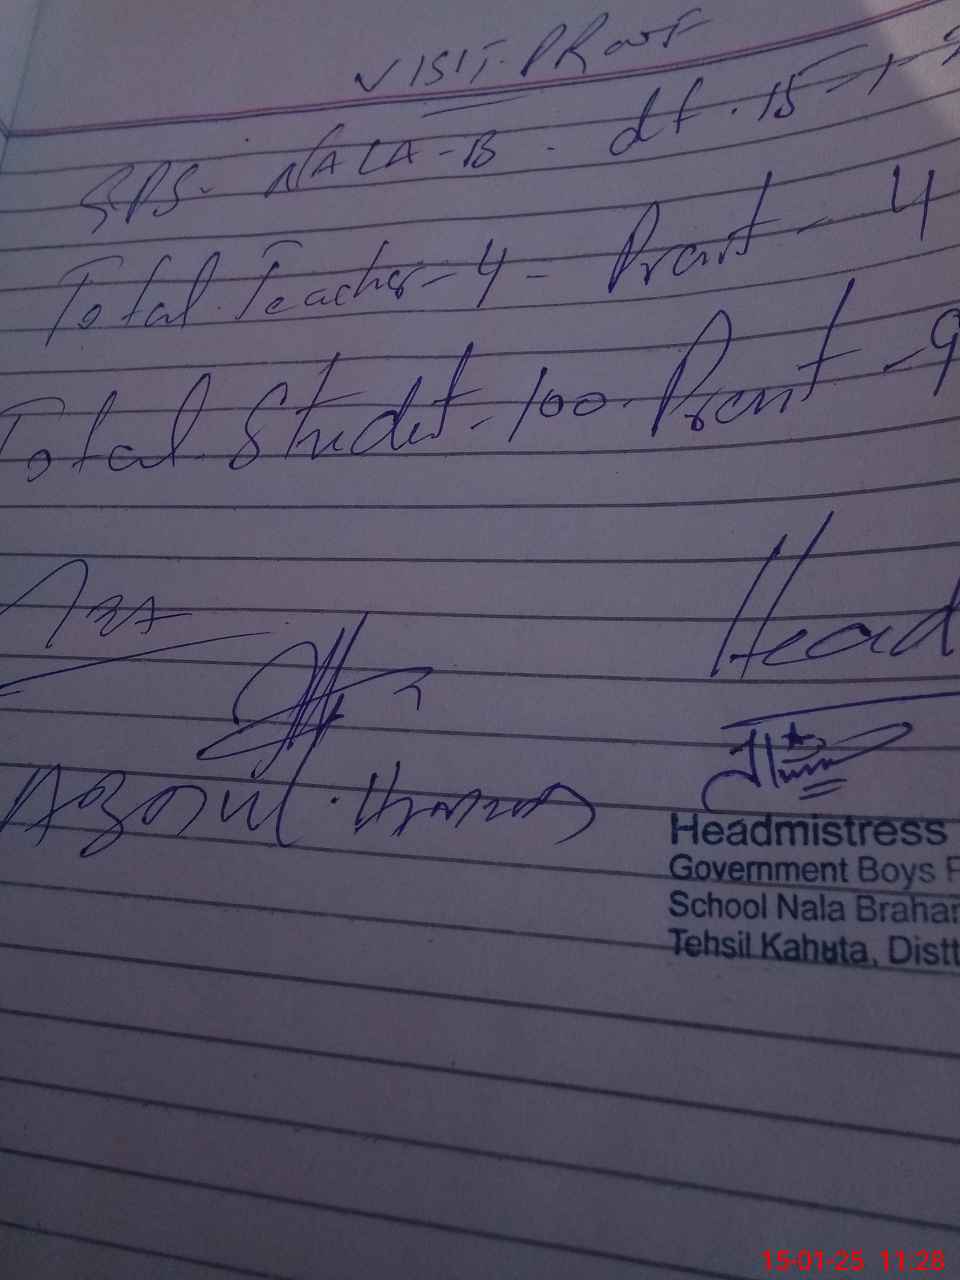 VISIT-PROOF
GPS- NALA-B - dt. 15-1-
Total Teacher-4- Prsnt - 4
Total Studet-100-Prsnt -9
Head
Abdul
Headmistress
Government Boys P
School Nala Brahar
Tehsil Kahuta, Distt
15-01-25 11:28